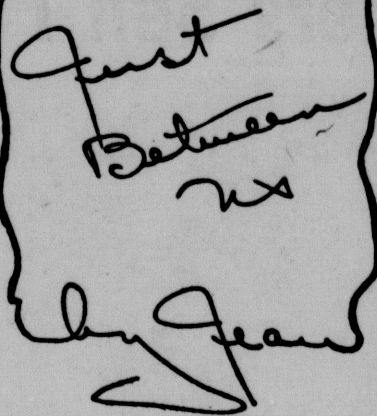 Just
Between
us
by Jean